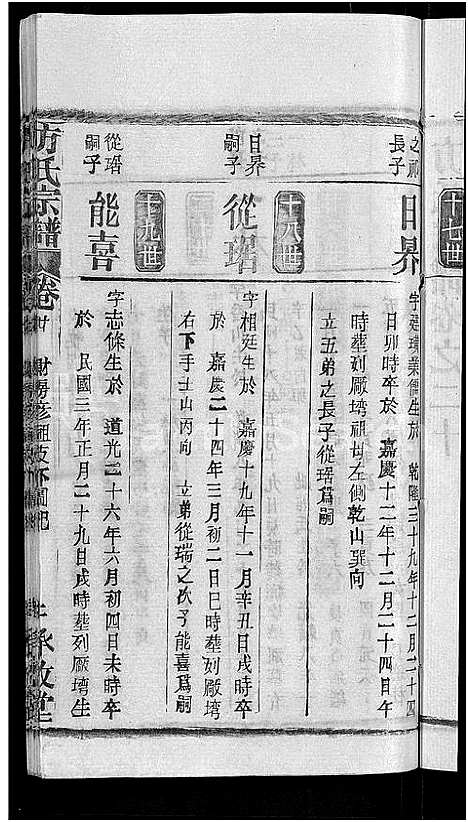 十七世
之祁
長子
日界
字建璪業儒生於 乾隆三十九年十二月二十四
日卯時卒於 嘉慶十二年十二月二十四日午
時塟列廠塆祖毌左側乾山巽向
立五弟之長子從琩爲嗣
十八世
日界
嗣子
從琩
字相廷生於 嘉慶十九年十一月辛丑日戌時卒
於 嘉慶二十四年三月初二日巳時塟列廠塆
右下手壬山丙向 立弟從瑞之次子能喜爲嗣
十九世
從琩
嗣子
能喜
字志條生於 道光二十六年六月初四日未時卒
於 民國三年正月二十九日戌時塟列廠塆生
方氏宗譜
卷廿
財房彥祖支
敘堂